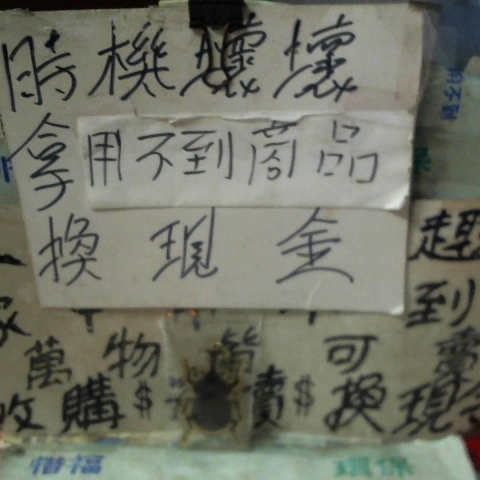 時機壞壞
拿用不到商品
換現金
趕
到
萬物 可
收購$ 賣$換現金
惜福 環保